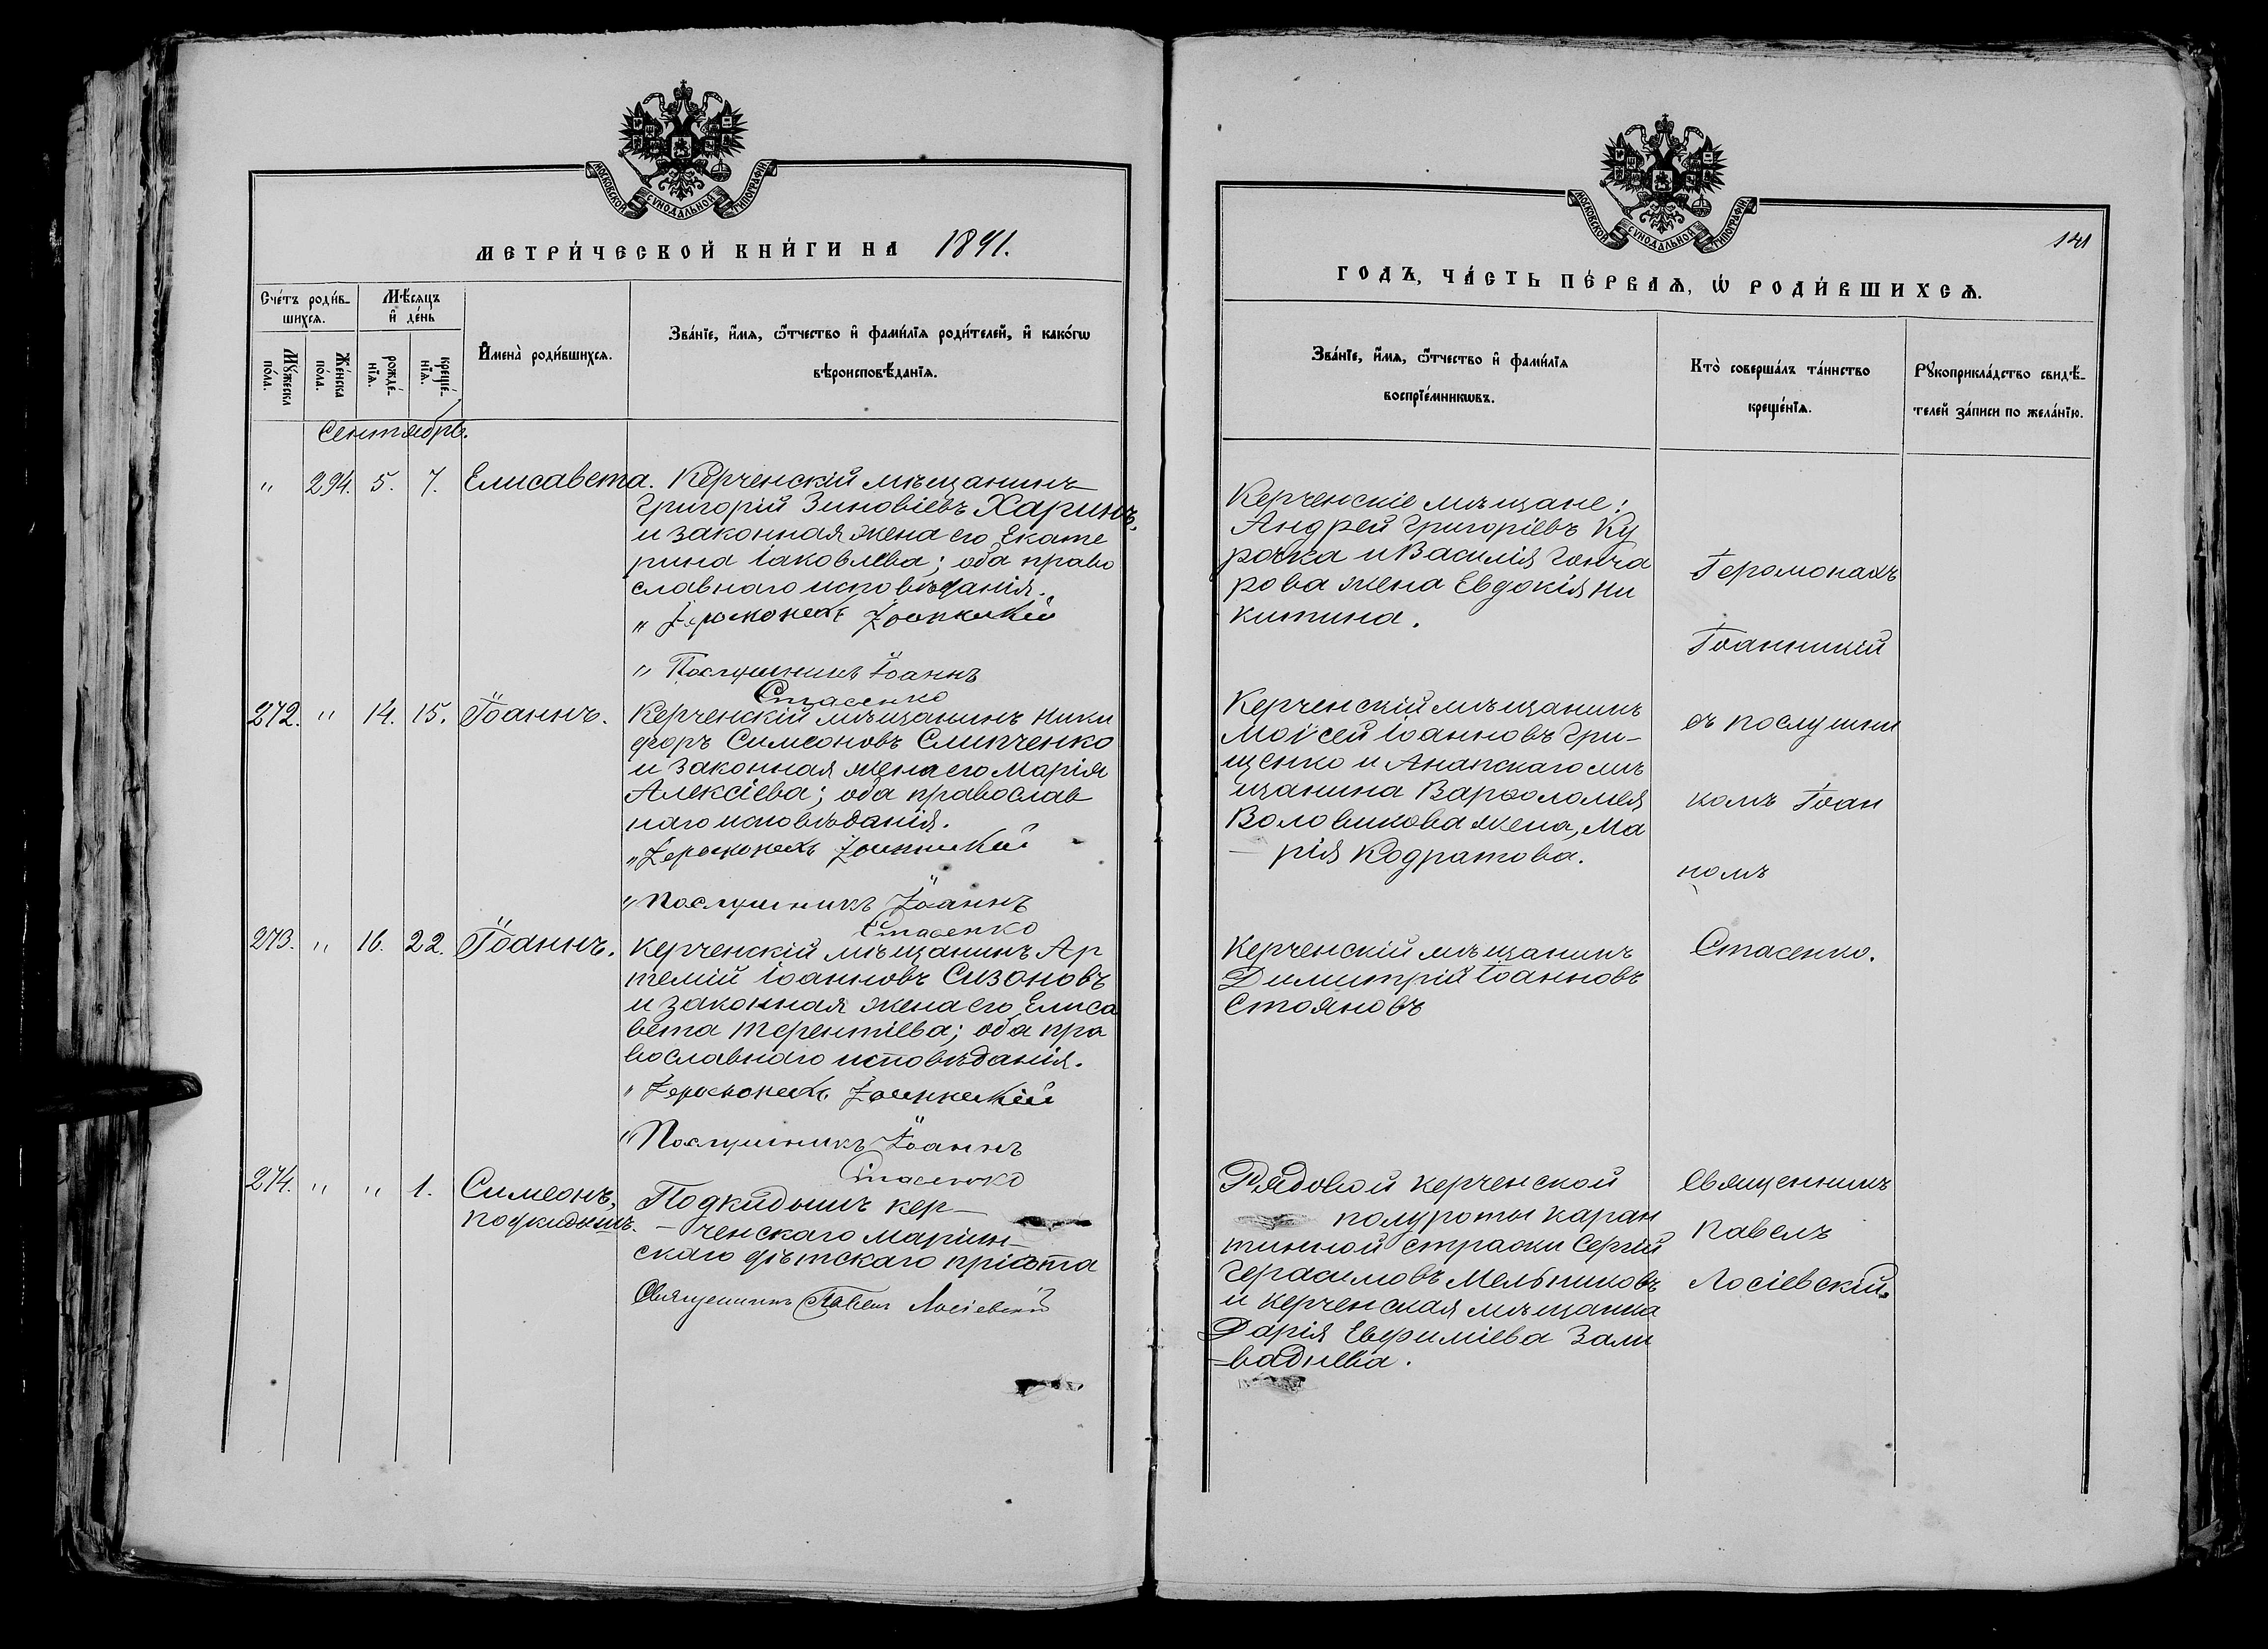 МОСКОВСКОЙ СѴНОДАЛЬНОЙ ТИПОГРАФІИ
МЕТРИ́ЧЕСКОЙ КНИ́ГИ НА 1891.
Сче́тъ роди́в-
шихсѧ.
Мѣ́сѧцъ
и҆ де́нь
Мꙋ́жеска
по́ла.
Же́нска
по́ла.
рожде́-
нїѧ.
креще́-
нїѧ.
И҆мена̀ роди́вшихсѧ.
Зва́нїе, и҆́мѧ, ѻ҆́тчество и҆ фами́лїѧ роди́телей, и҆ како́гѡ
вѣроисповѣ́данїѧ.
Сентябрь.
" 294. 5. 7. Елисавета.
Керченскій мѣщанинъ
Григорій Зиновіевъ Харинъ
и законная жена его Екате
рина Іаковлева; оба право
славнаго исповѣданія.
" Іеромонахъ Іоанникій
" Послушникъ Іоаннъ
Стасенко
272. " 14. 15. Іоаннъ.
Керченскій мѣщанинъ Ники
форъ Симеоновъ Слипченко
и законная жена его Марія
Алексіева; оба православ
наго исповѣданія.
" Іеромонахъ Іоанникій
" Послушникъ Іоаннъ
Стасенко
273. " 16. 22. Іоаннъ.
Керченскій мѣщанинъ Ар
темій Іоанновъ Сизоновъ
и законная жена его Елиса
вета Терентіева; оба пра
вославнаго исповѣданія.
" Іеромонахъ Іоанникій
" Послушникъ Іоаннъ
Стасенко
274. " " 1. Симеонъ,
подкидышъ.
Подкидышъ кер-
ченскаго Маріин-
скаго дѣтскаго пріюта
Священникъ Павелъ Лосіевскій
МОСКОВСКОЙ СѴНОДАЛЬНОЙ ТИПОГРАФІИ
141
ГОДЪ, ЧА́СТЬ ПЕ́РВАѦ, Ѡ҆ РОДИ́ВШИХСѦ.
Зва́нїе, и҆́мѧ, ѻ҆́тчество и҆ фами́лїѧ
воспрїе́мникѡвъ.
Кто̀ соверша́лъ та́инство
креще́нїѧ.
Рꙋкоприкла́дство свидѣ́-
телей за́писи по жела́нїю.
Керченскіе мѣщане:
Андрей Григоріевъ Ку
рочка и Василія Гонча
рова жена Евдокія Ни
китина.
Іеромонахъ
Іоанникій
Керченскій мѣщанинъ
Моѵсей Іоанновъ Гри-
щенко и Анапскаго мѣ
щанина Варѳоломея
Воловикова жена, Ма
рія Кодратова.
съ послушни
комъ Іоан
номъ
Керченскій мѣщанинъ
Димитрій Іоанновъ
Стояновъ
Стасенко.
Рядовой керченской
полуроты каран
тинной стражи Сергій
Герасимовъ Мельниковъ
и керченская мѣщанка
Дарія Евфиміева Зали
вадиева.
Священникъ
Павелъ
Лосіевскій.